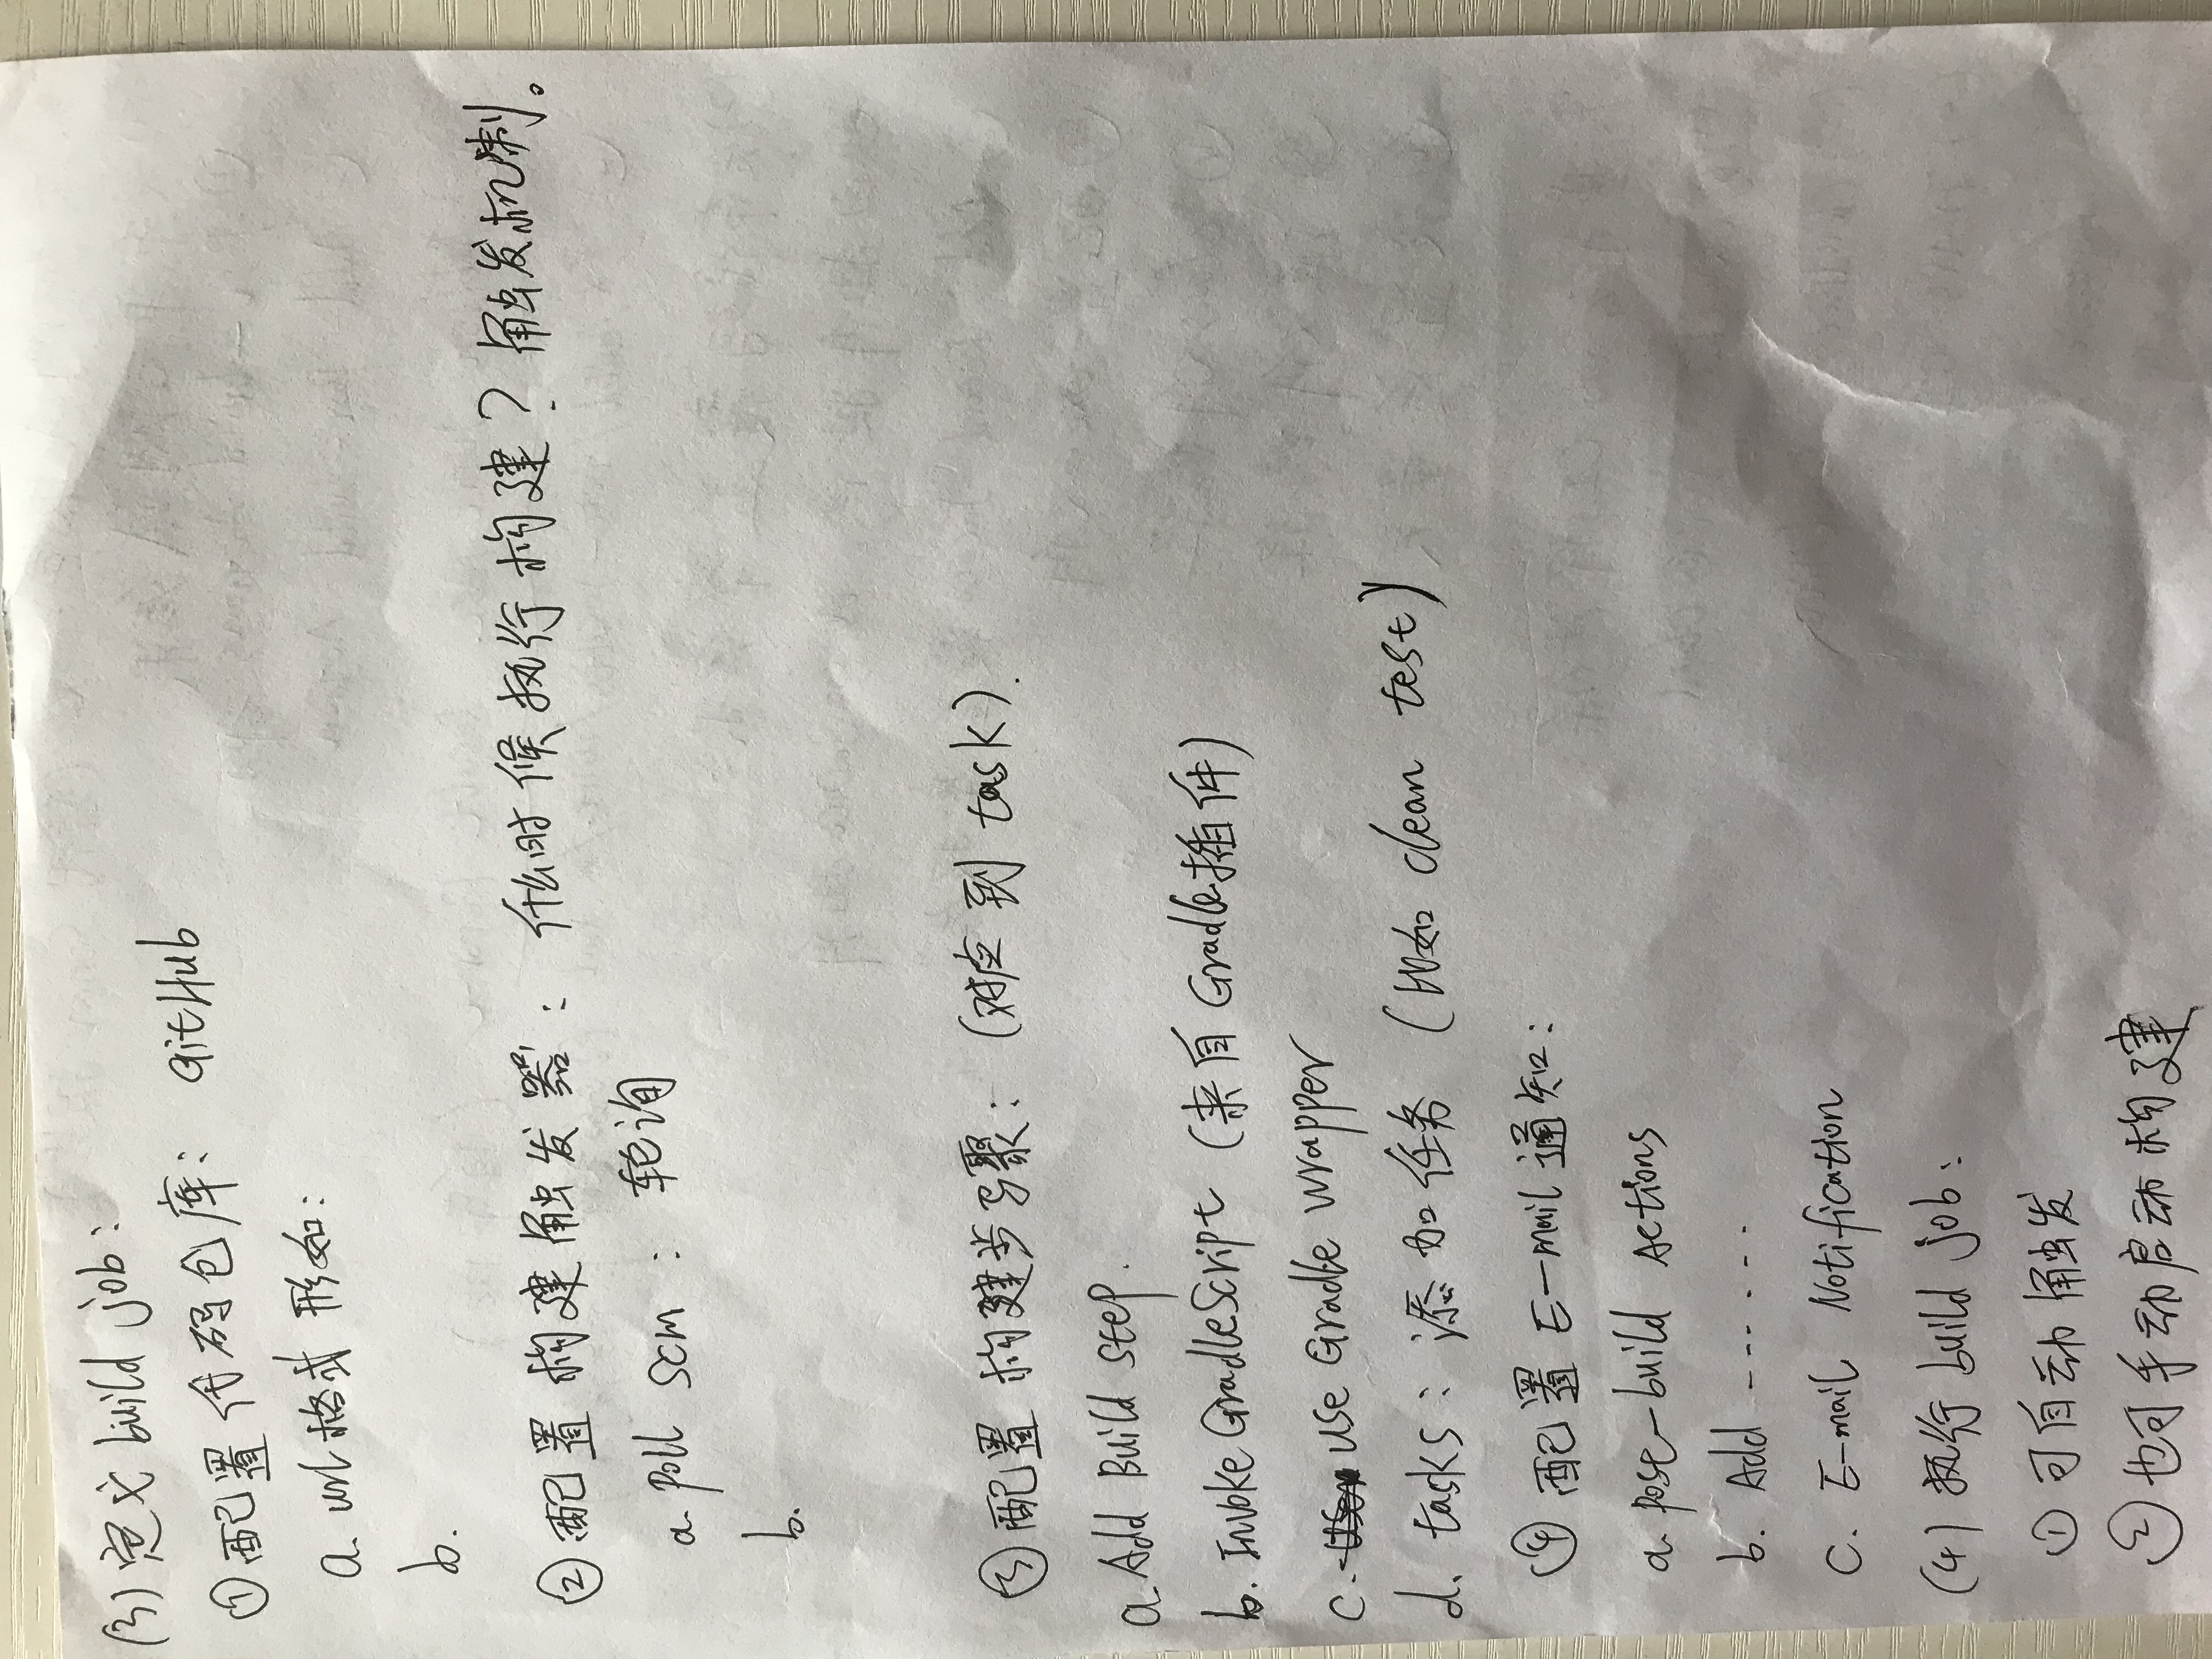 (3) 定义 build job:
①配置代码仓库: GitHub
a. url格式形如:
b.
②配置构建触发器: 什么时候执行构建? 触发机制。
a. Poll SCM : 轮询
b.
③配置构建步骤: (对应到 task).
a. Add Build step.
b. Invoke GradleScript (来自Gradle插件)
c. use Gradle wrapper
d. tasks: 添加任务 (比如 clean test)
④ 配置 E-mail 通知:
a. post-build Actions
b. Add ------
C. E-mail Notification
(4) 执行 build job:
① 可自动触发
② 也可手动启动构建